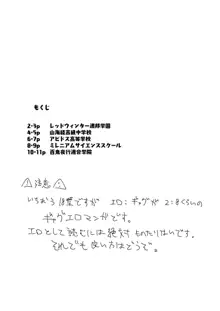 もくじ
2-3p レッドウィンター連邦学園
4-5p 山海経高級中学校
6-7p アビドス高等学校
8-9p ミレニアムサイエンススクール
10-11p 百鬼夜行連合学院
⚠注意⚠
いちおう 健全ですが エロ:ギャグが 2:8くらいの
ギャグエロマンガです。
エロとして読むには絶対 向いてないです。
それでも良い方はどうぞ。